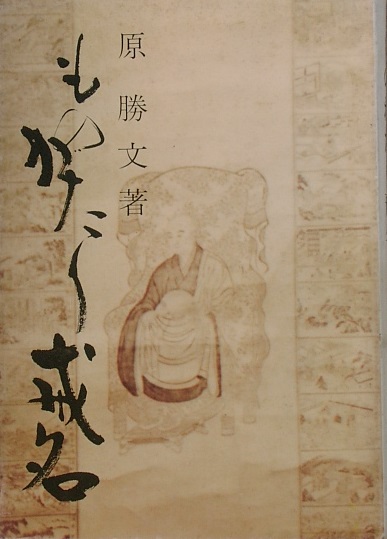 原勝文著
ものがたり戒名